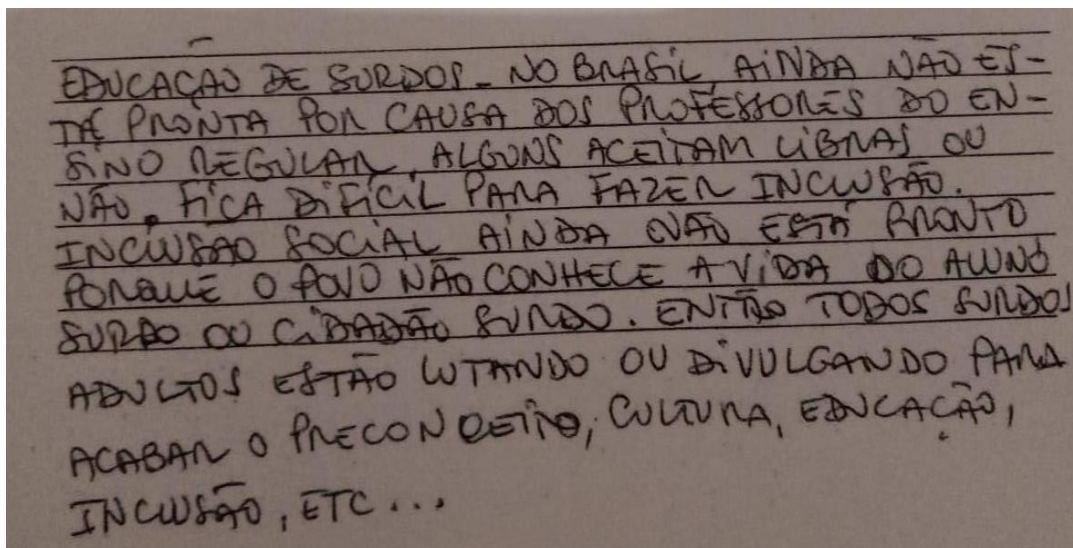 EDUCAÇÃO DE SURDOS - NO BRASIL AINDA NÃO ES-
TÁ PRONTA POR CAUSA DOS PROFESSORES DO EN-
SINO REGULAR, ALGUNS ACEITAM LIBRAS OU
NÃO, FICA DIFÍCIL PARA FAZER INCLUSÃO.
INCLUSÃO SOCIAL AINDA NÃO ESTÁ PRONTO
PORQUE O POVO NÃO CONHECE A VIDA DO ALUNO
SURDO OU CIDADÃO SURDO. ENTÃO TODOS SURDOS
ADULTOS ESTÃO LUTANDO OU DIVULGANDO PARA
ACABAR O PRECONCEITO, CULTURA, EDUCAÇÃO,
INCLUSÃO, ETC...